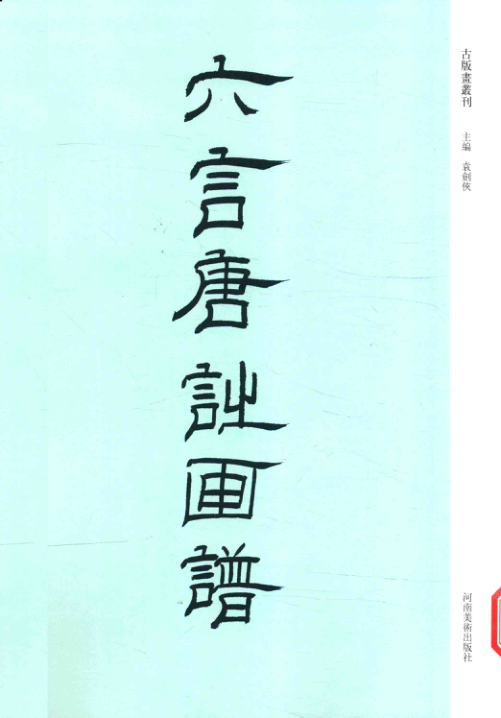 六言唐詩画譜
古版畫叢刊
主編 袁劍俠
河南美術出版社